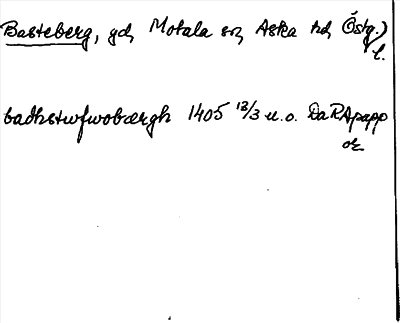 Basteberg, gd, Motala sn, Aska hd, Östg.
l.
badhstwfwobærgh 1405 12/3 u.o. DaRApapp
or.